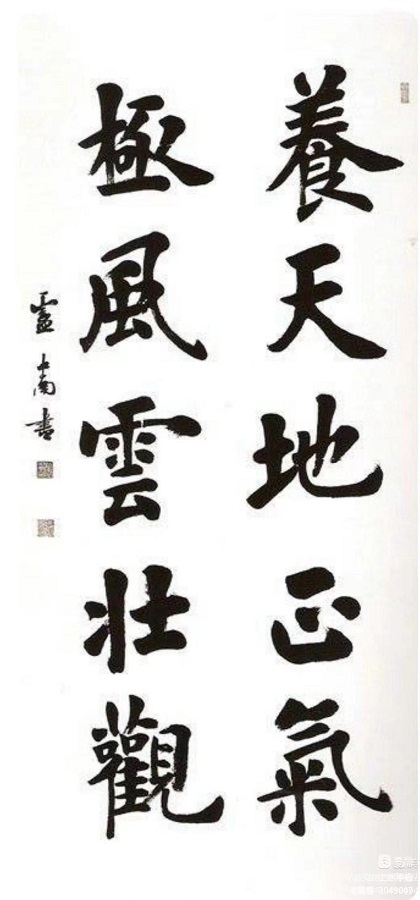 養天地正氣
極風雲壯觀
靈南書